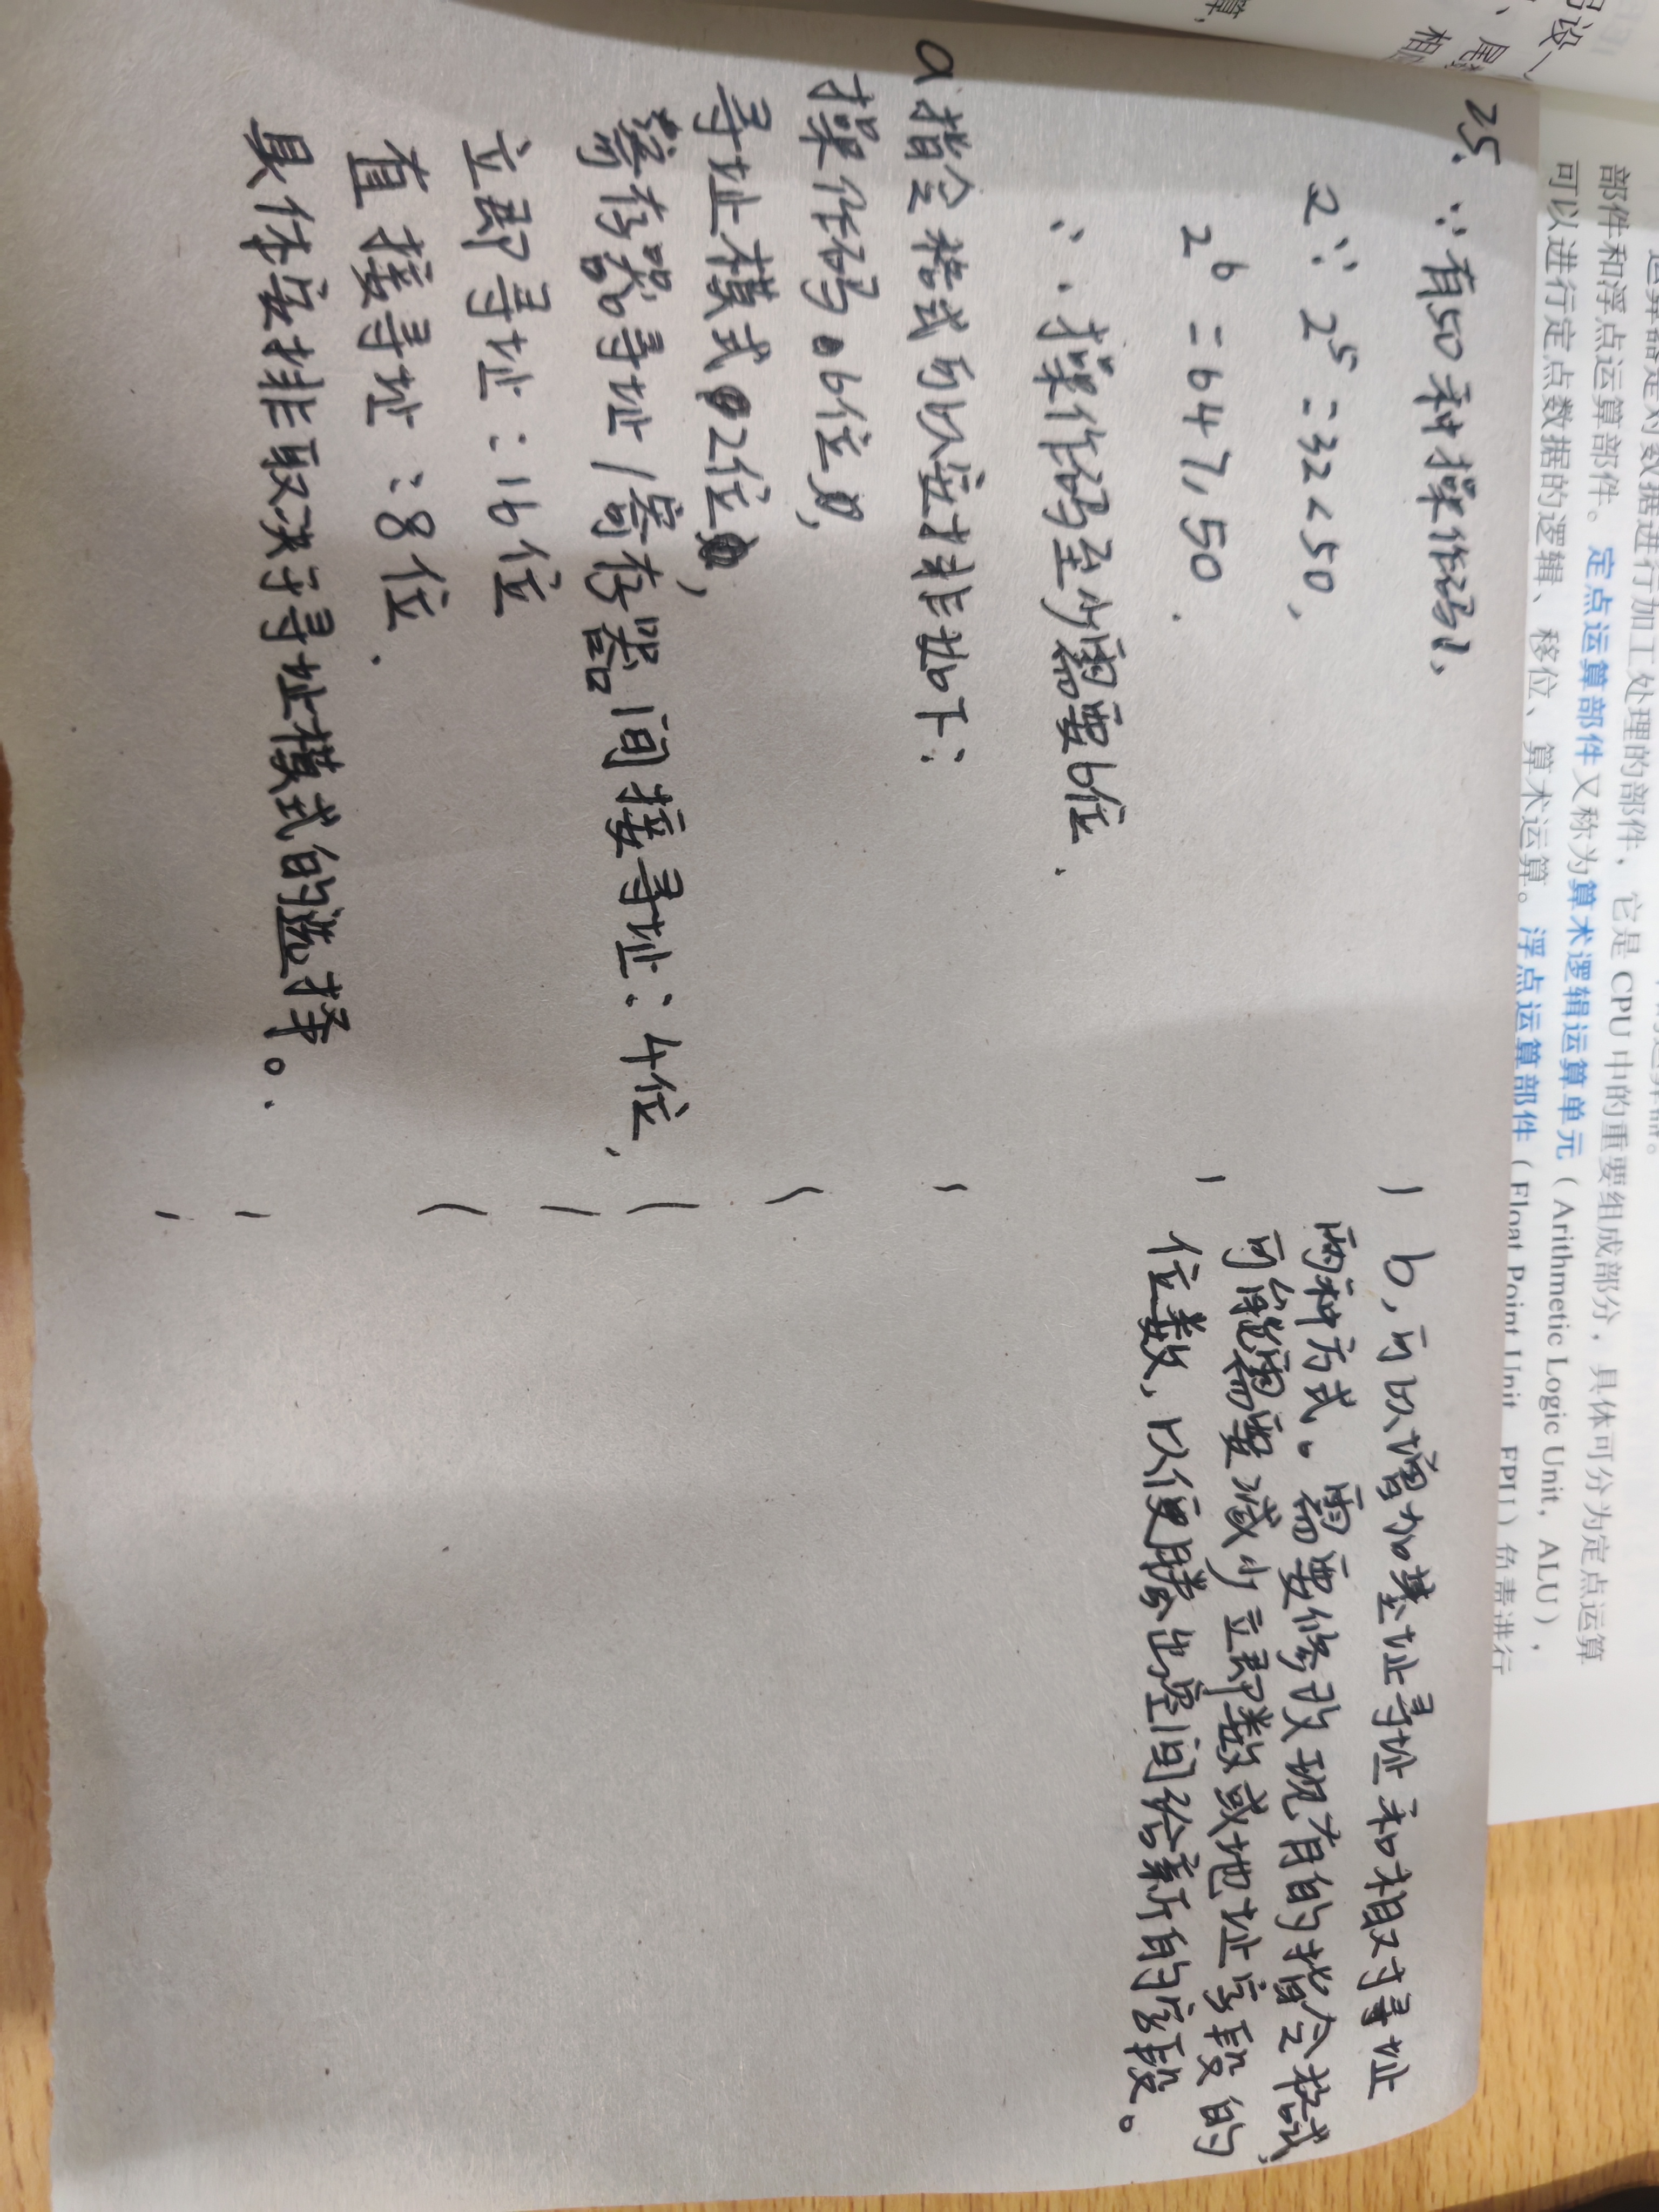 运算器是对数据进行加工处理的部件，它是 CPU 中的重要组成部分，具体可分为定点运算
部件和浮点运算部件。定点运算部件又称为算术逻辑运算单元（Arithmetic Logic Unit，ALU），
可以进行定点数据的逻辑、移位、算术运算。浮点运算部件（Float Point Unit，FPU）负责进行
25.
∵有50种操作码,
又∵ 2⁵=32<50,
2⁶=64>50.
∴操作码至少需要6位.
a指令格式可以安排如下:
操作码 6位,
寻址模式 2位,
寄存器寻址/寄存器间接寻址:4位,
立即寻址:16位
直接寻址:8位.
具体安排取决于寻址模式的选择。
b,可以增加基址寻址和相对寻址
两种方式。需要修改现有的指令格式,
可能需要减少立即数或地址字段的
位数,以便腾出空间给新的字段。